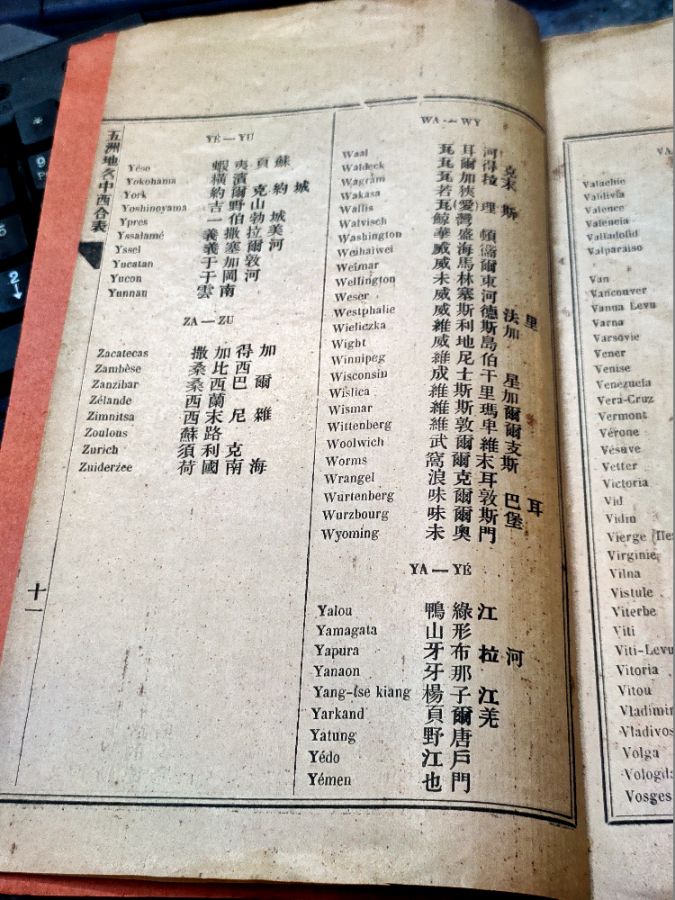 VA
Valachie
Valdivia
Valence
Valencia
Valladolid
Valparaiso
Van
Vancouver
Vanua Levu
Varna
Varsovie
Vener
Venise
Venezuela
Vera-Cruz
Vermont
Vérone
Vésuve
Vetter
Victoria
Vid
Vidin
Vierge
Virginie
Vilna
Vistule
Viterbe
Viti
Viti-Levu
Vitoria
Vitou
Vladimir
Vladivos
Volga
Vologda
Vosges
WA — WY
Waal 瓦耳河
Waldeck 瓦爾得克
Wagram 瓦加拉末
Wakasa 若狹
Wallis 瓦(愛)理斯
Walvisch 鯨灣
Washington 華盛頓
Weihaiwei 威海衛
Weimar 威馬爾
Wellington 威林東
Weser 未塞河
Westphalie 威斯德法里
Wieliczka 威利斯加
Wight 威地島
Winnipeg 維尼伯
Wisconsin 成士干星
Wislica 維斯里加
Wismar 維斯瑪爾
Wittenberg 維敦卑爾
Woolwich 武爾維支
Worms 窩爾末斯
Wrangel 浪克耳
Wurtenberg 味爾敦巴耳
Wurzbourg 味爾斯堡
Wyoming 未奧門
YA — YÉ
Yalou 鴨綠江
Yamagata 山形
Yapura 牙布拉河
Yanaon 牙那
Yang-tse kiang 楊子江
Yarkand 頁爾羌
Yatung 野唐
Yédo 江戶
Yémen 也門
五洲地名中西合表
YÉ — YU
Yéso 蝦夷 頁蘇
Yokohama 橫濱
York 約爾克 約城
Yoshinoyama 吉野山
Ypres 一伯勃城
Yssalamé 義撒拉美
Yssel 義塞爾河
Yucatan 于加敦
Yucon 于岡河
Yunnan 雲南
ZA — ZU
Zacatecas 撒加得加
Zambèse 桑比西
Zanzibar 桑西巴爾
Zélande 西蘭
Zimnitsa 西末尼雜
Zoulous 蘇路
Zurich 須利克
Zuiderzee 荷國南海
十一